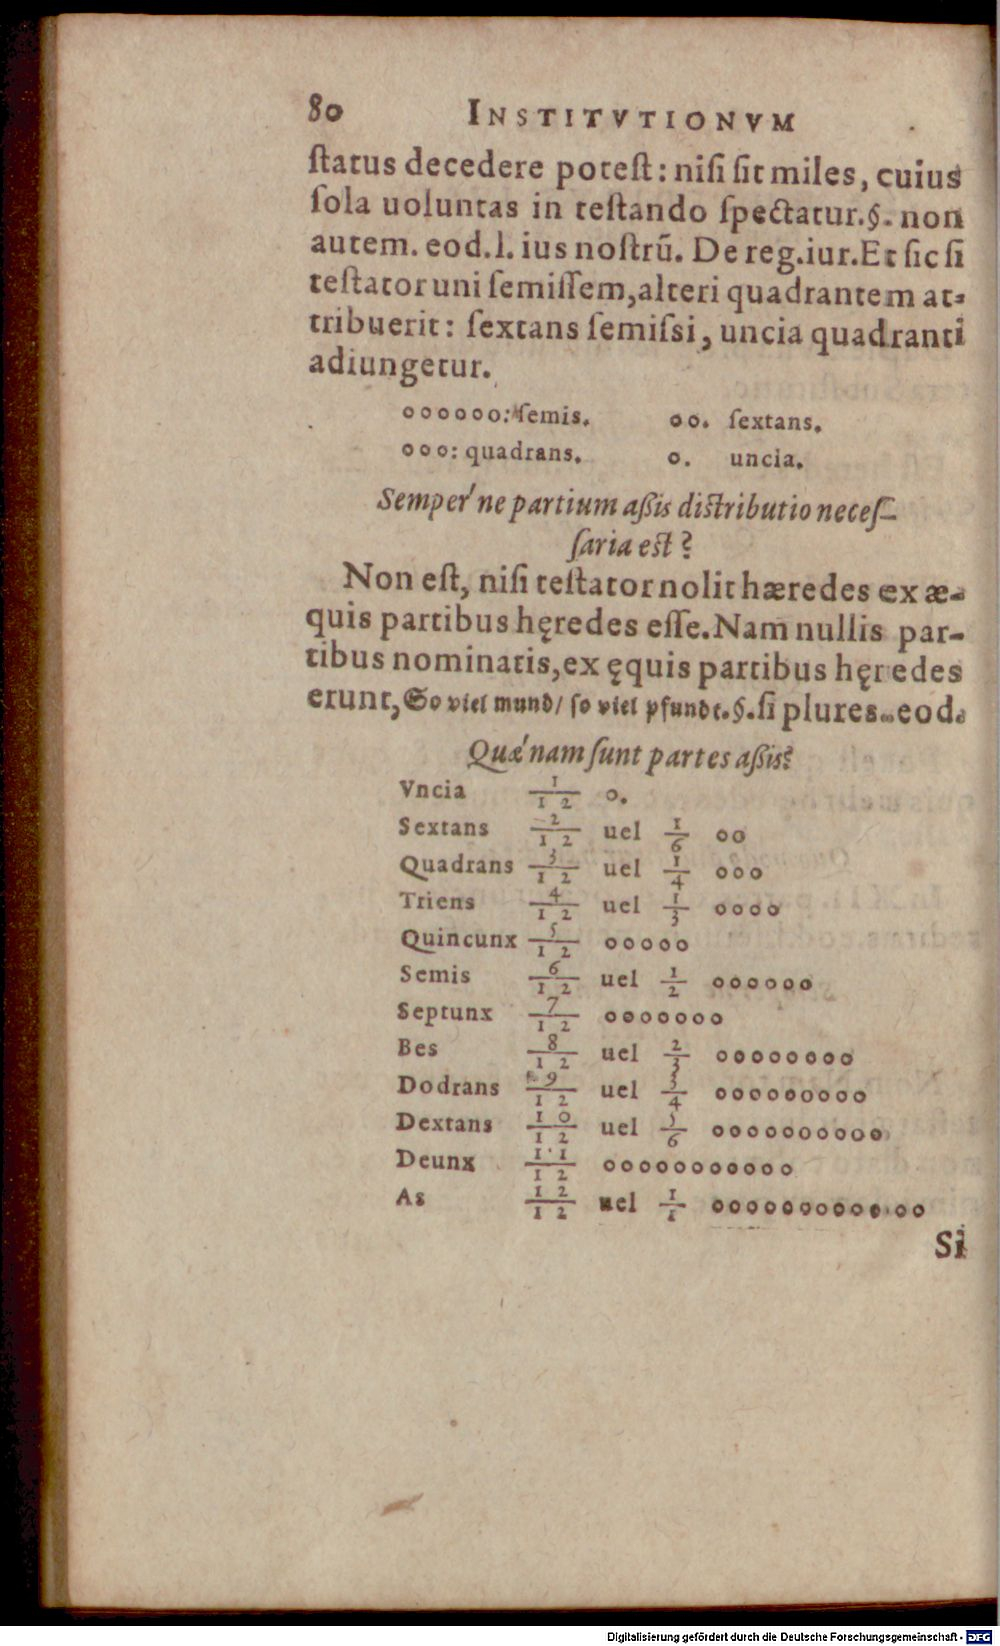 80 INSTITVTIONVM
ſtatus decedere poteſt: niſi ſit miles, cuius
ſola uoluntas in teſtando ſpectatur.§. non
autem. eod.l. ius noſtrũ. De reg.iur.Et ſic ſi
teſtator uni ſemiſſem,alteri quadrantem at-
tribuerit: ſextans ſemiſsi, uncia quadranti
adiungetur.
oooooo: ſemis. oo. ſextans.
ooo: quadrans. o. uncia.
Semper'ne partium aßis diſtributio neceſ-
ſaria eſt?
Non eſt, niſi teſtator nolit hæredes ex æ-
quis partibus hęredes eſſe.Nam nullis par-
tibus nominatis,ex ęquis partibus hęredes
erunt, So viel mund/ ſo viel pfundt.§.ſi plures. eod.
Quæ'nam ſunt partes aßis?
Vncia 1/12 o.
Sextans 2/12 uel 1/6 oo
Quadrans 3/12 uel 1/4 ooo
Triens 4/12 uel 1/3 oooo
Quincunx 5/12 ooooo
Semis 6/12 uel 1/2 oooooo
Septunx 7/12 ooooooo
Bes 8/12 uel 2/3 oooooooo
Dodrans 9/12 uel 3/4 ooooooooo
Dextans 10/12 uel 5/6 oooooooooo
Deunx 11/12 ooooooooooo
As 12/12 uel 1/1 oooooooooooo
Si
Digitalisierung gefördert durch die Deutsche Forschungsgemeinschaft - DFG